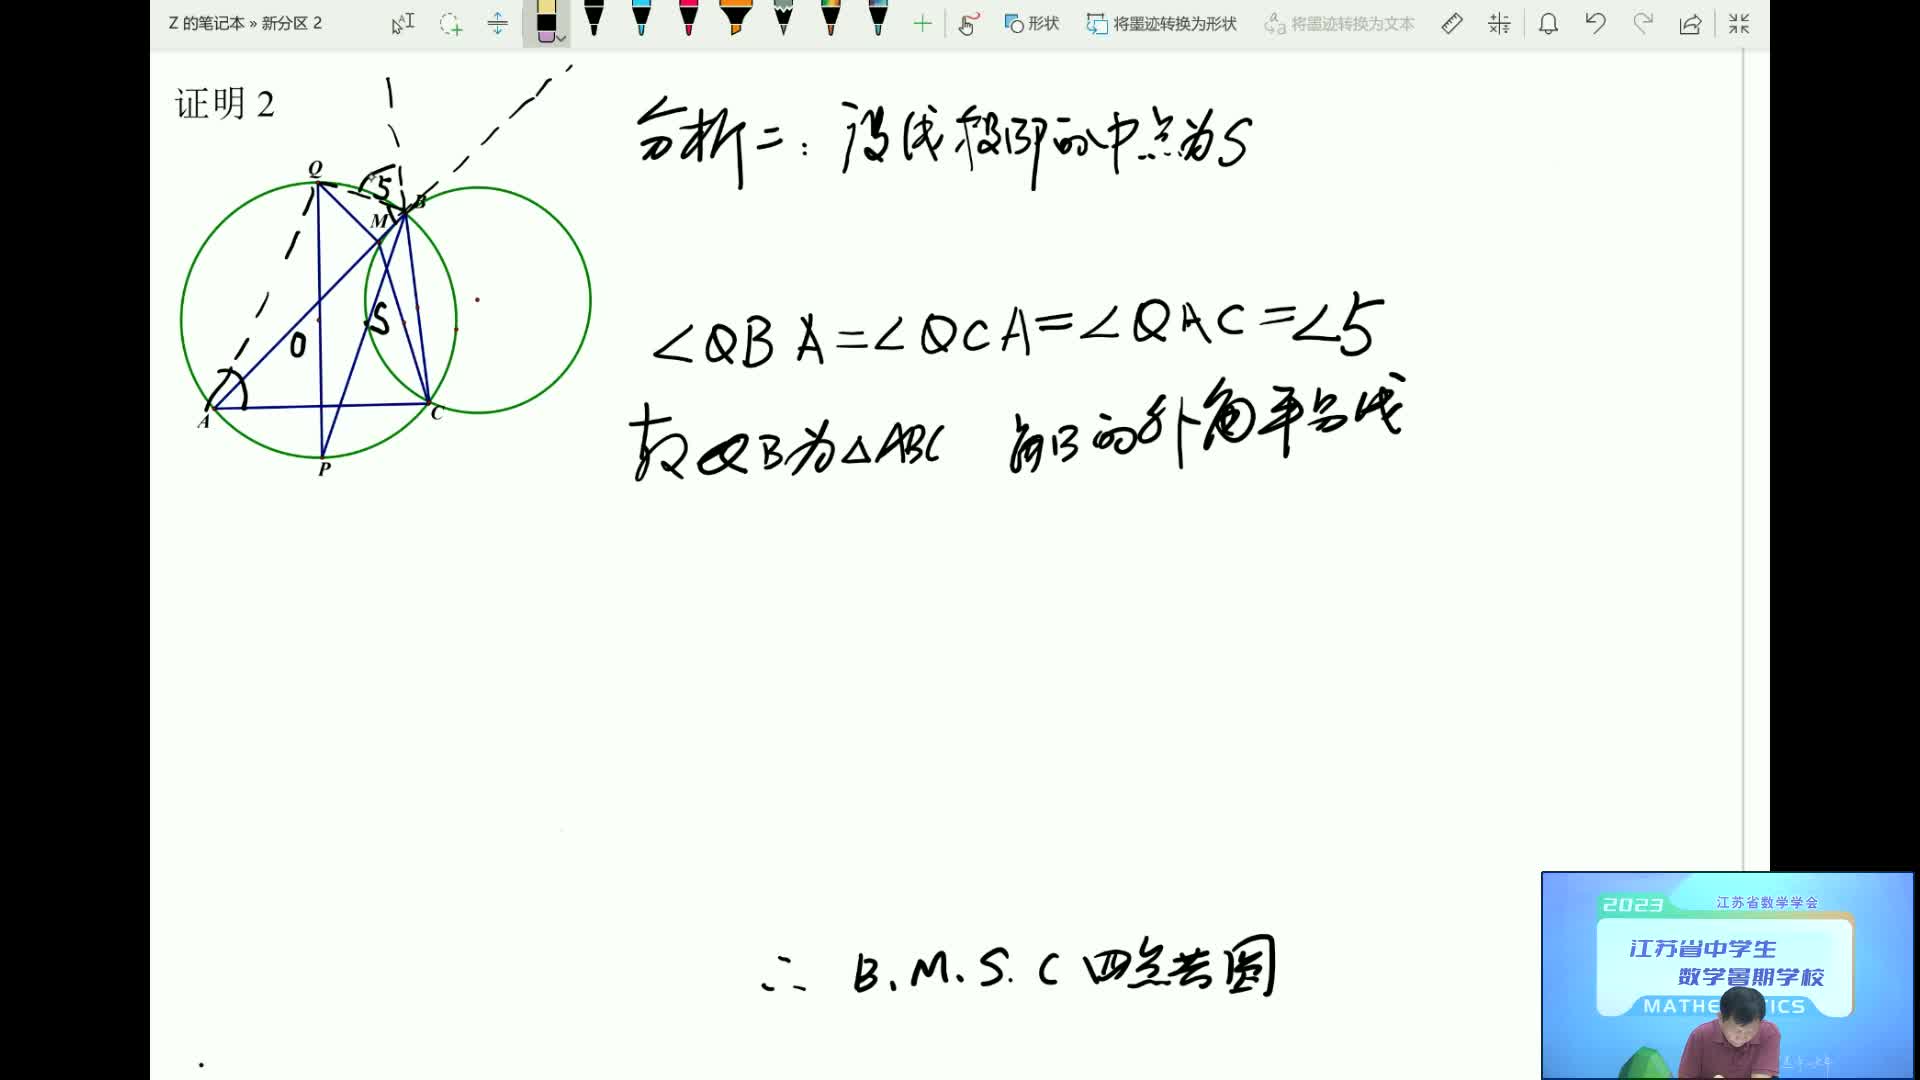 Z 的笔记本 » 新分区 2
形状
将墨迹转换为形状
将墨迹转换为文本
证明 2
分析二：设线段BP的中点为S
Q
5
M B
S
O
A
C
P
∠QBA=∠QCA=∠QAC=∠5
故QB为△ABC 角B的外角平分线
∴ B.M.S.C四点共圆
2023 江苏省数学学会
江苏省中学生
数学暑期学校